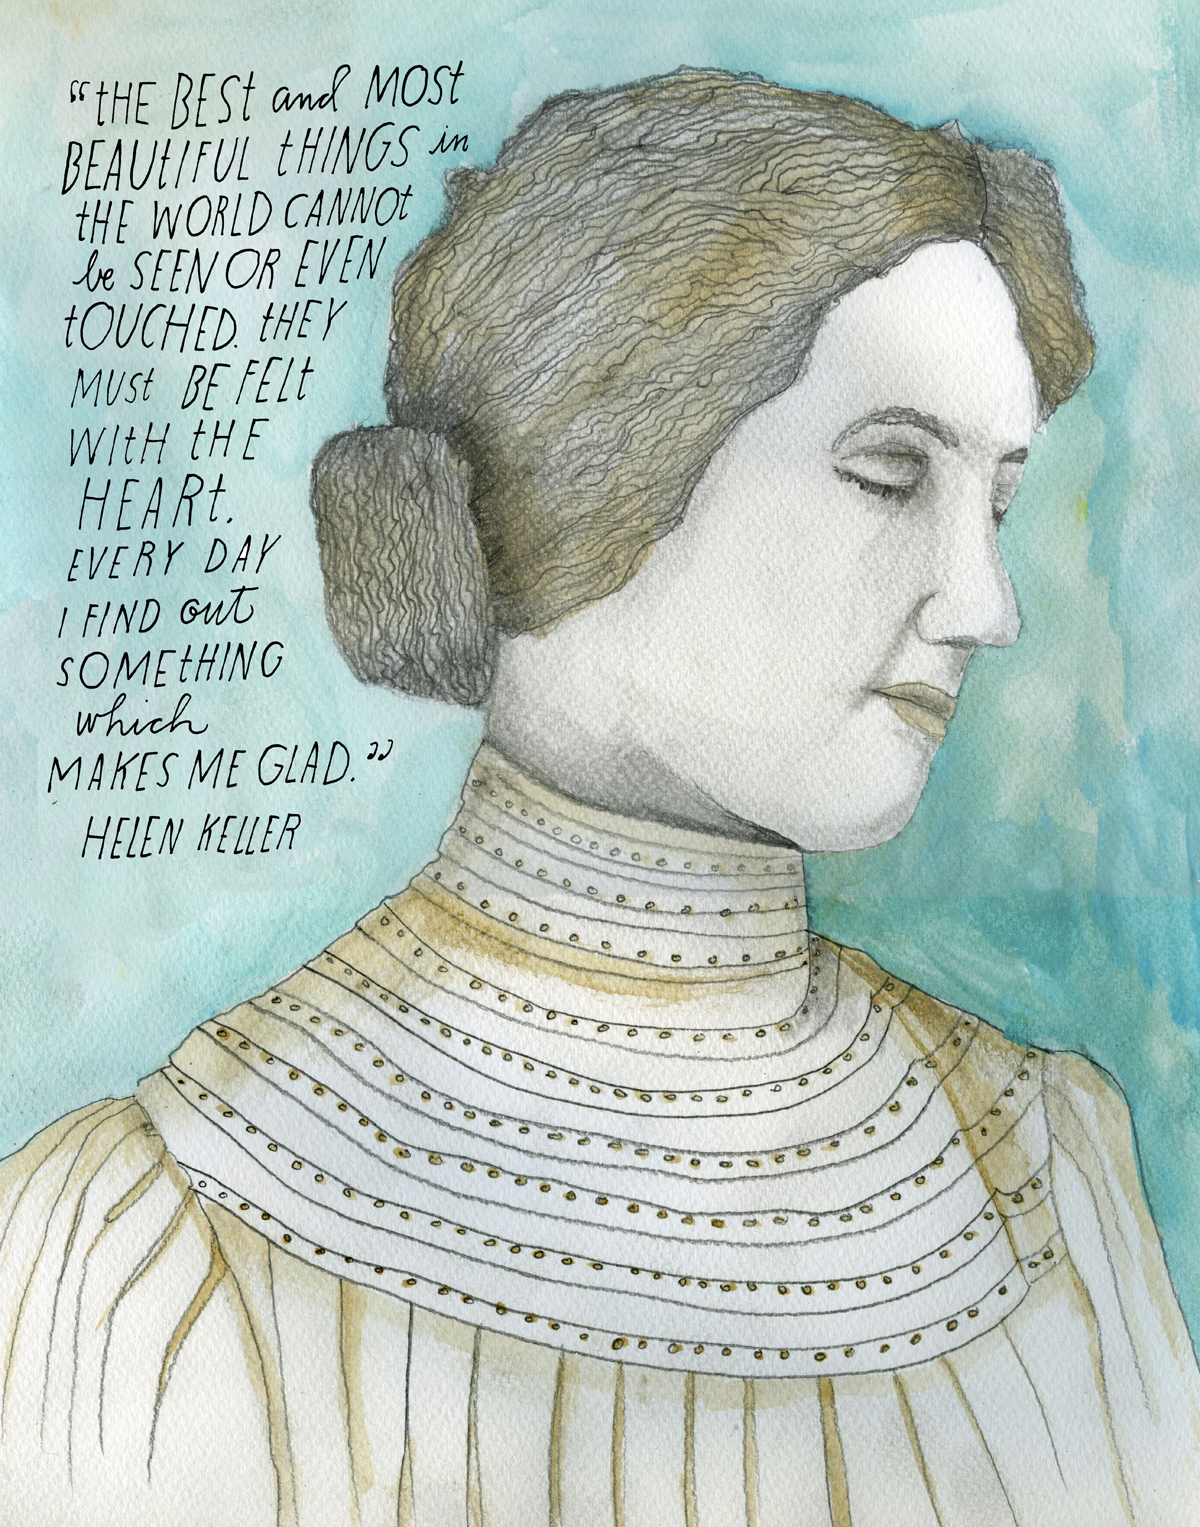 “tHE BESt and MOSt
BEAUtIFUL tHINGS in
tHE WORLD CANNOt
be SEEN OR EVEN
tOUCHED. tHEY
MUSt BE FELt
WItH tHE
HEARt.
EVERY DAY
I FIND out
SOMEtHING
which
MAKES ME GLAD.”
HELEN KELLER